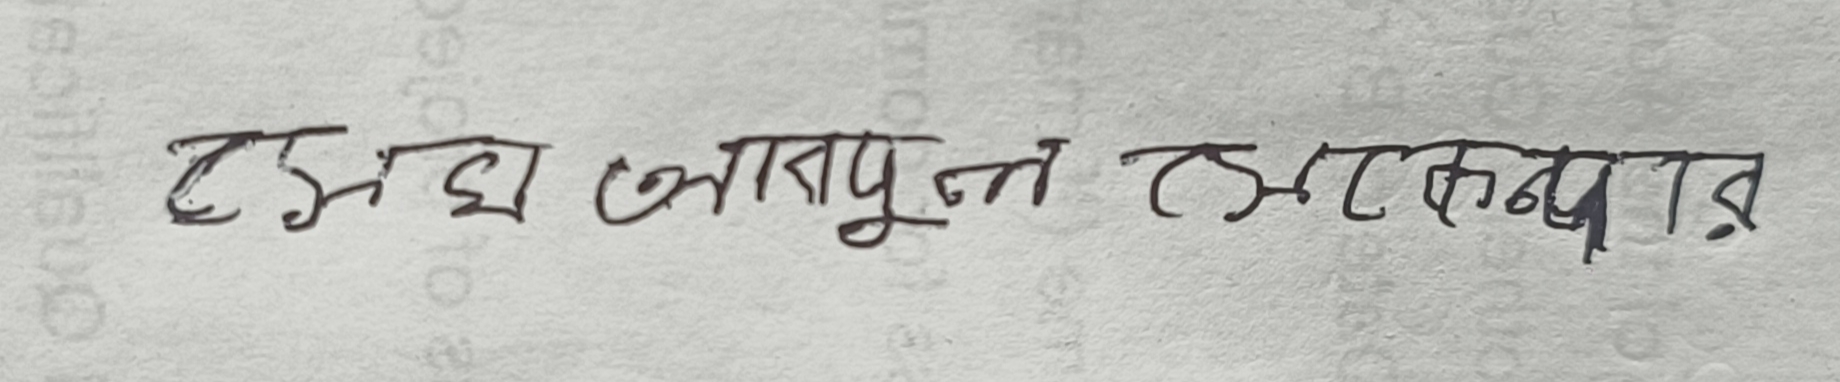 সেখ আবদুল সেকেন্দার